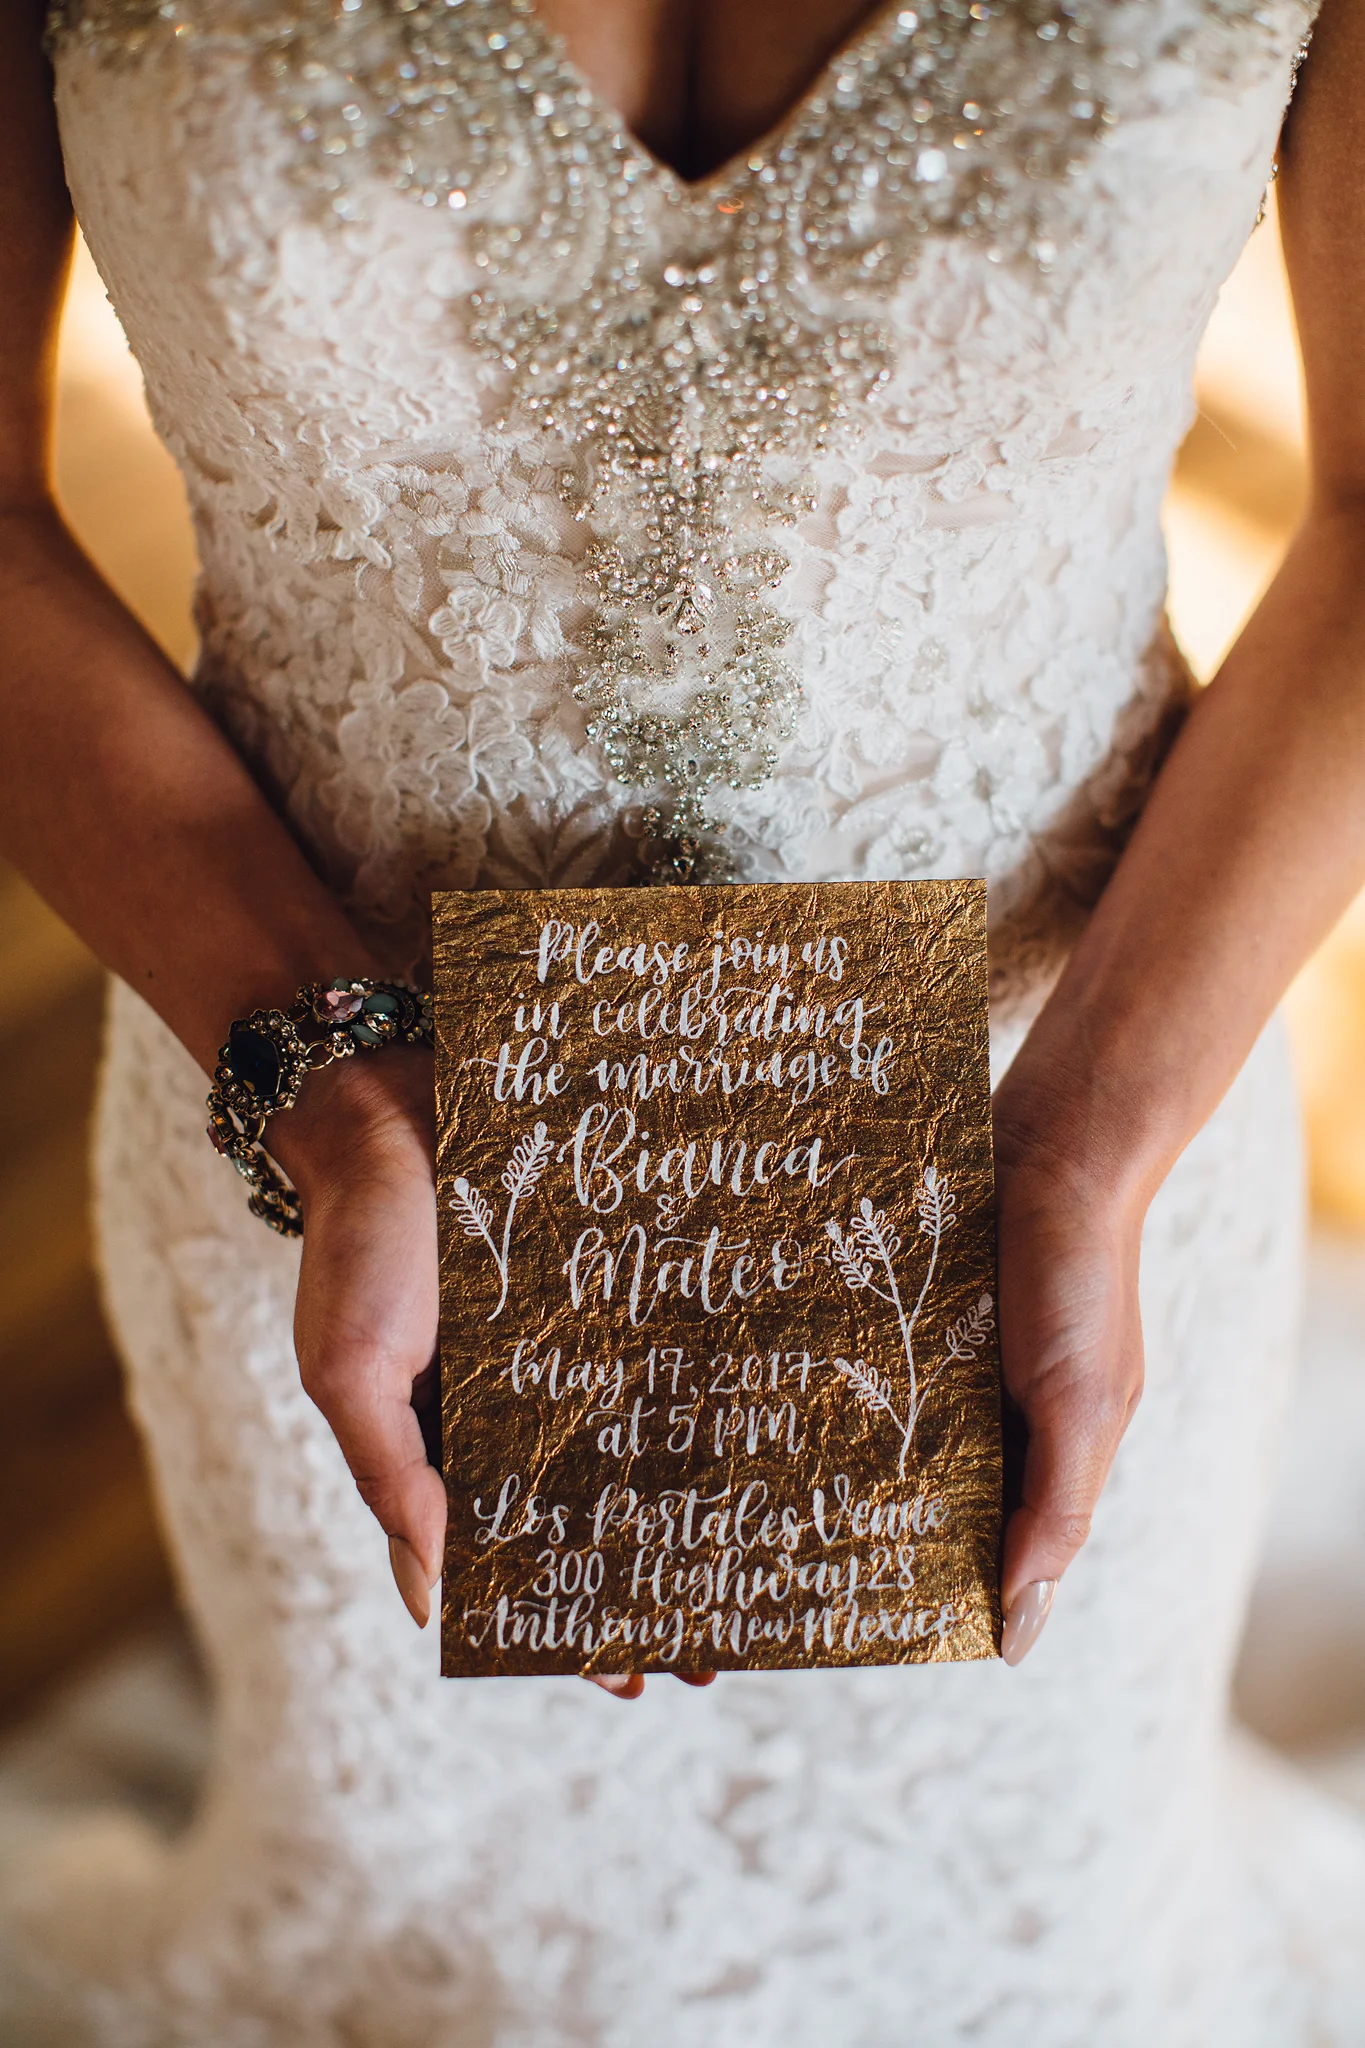 Please join us
in celebrating
the marriage of
Bianca
&
Mateo
May 17, 2017
at 5 PM
Los Portales Venue
300 Highway 28
Anthony, New Mexico